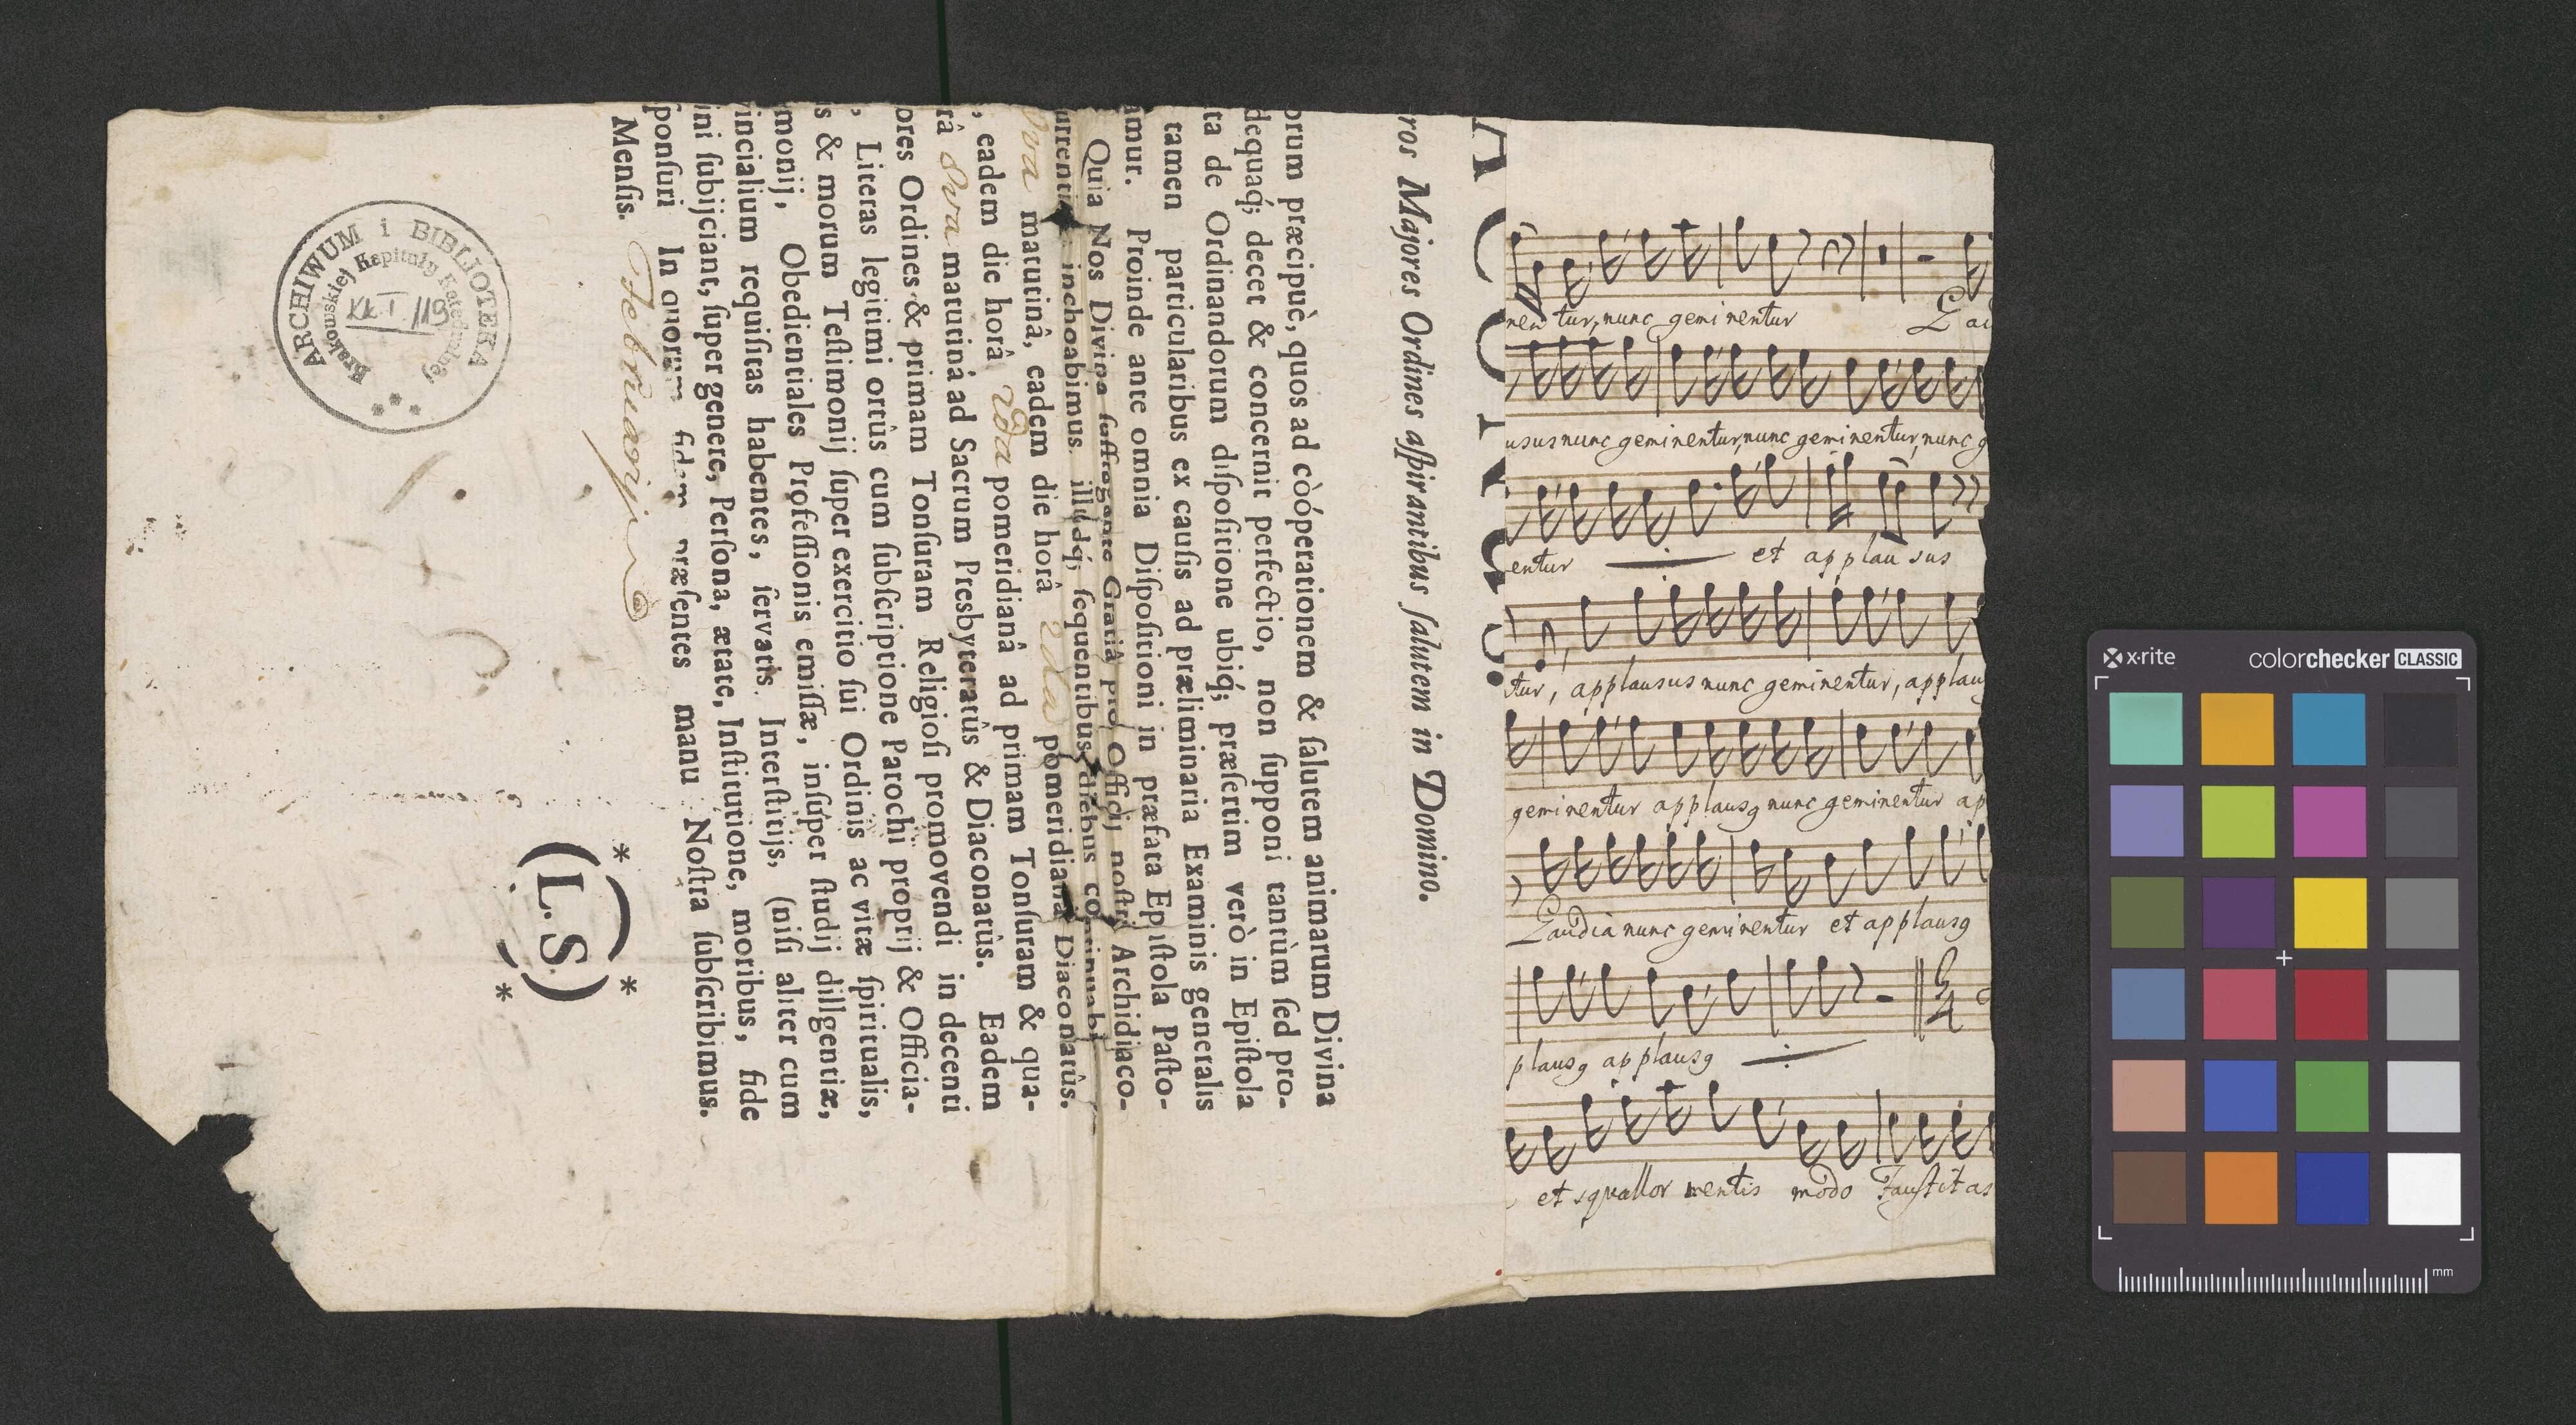 ros Majores Ordines aſpirantibus ſalutem in Domino.
orum præcipuè, quos ad coòperationem & ſalutem animarum Divina
dequaq́; decet & concernit perfectio, non ſupponi tantùm ſed pro-
ta de Ordinandorum diſpoſitione ubiq́; præſertim verò in Epiſtola
tamen particularibus ex cauſis ad præliminaria Examinis generalis
amur. Proinde ante omnia Diſpoſitioni in præfata Epiſtola Paſto-
Quia Nos Divina ſuffragante Gratiâ pro Officij noſtri Archidiaco-
urrentis inchoabimus illudq́; ſequentibus diebus continuabi
matutinâ, eadem die horâ 2da pomeridianâ Diaconatûs.
, eadem die horâ 2da pomeridianâ ad primam Tonſuram & qua-
râ 8va matutinâ ad Sacrum Presbyteratûs & Diaconatûs. Eadem
ores Ordines & primam Tonſuram Religioſi promovendi in decenti
, Literas legitimi ortûs cum ſubſcriptione Parochi proprij & Officia-
is & morum Teſtimonij ſuper exercitio ſui Ordinis ac vitæ ſpiritualis,
monij, Obedientiales Profeſſionis emiſſæ, inſuper ſtudij dillgentiæ,
vincialium requiſitas habentes, ſervatis Interſtitijs, (niſi aliter cum
ini ſubijciant, ſuper genere, Perſona, ætate, Inſtitutione, moribus, fide
ponſuri In quorum fidem præſentes manu Noſtra ſubſcribimus.
Menſis. Februarij
(L.S)
ARCHIWUM i BIBLIOTEKA
Krakowskiej Kapituły Katedralnej
KK I /119
nen tur, nunc geminentur Gau
usus nunc geminentur, nunc geminentur, nunc g
entur et applausus
tur, applausus nunc geminentur, applau
geminentur applausꝯ nunc geminentur ap
Gaudia nunc geminentur et applausꝯ
plausꝯ applausꝯ
et squallor mentis modo Faustitas
x-rite colorchecker CLASSIC
mm